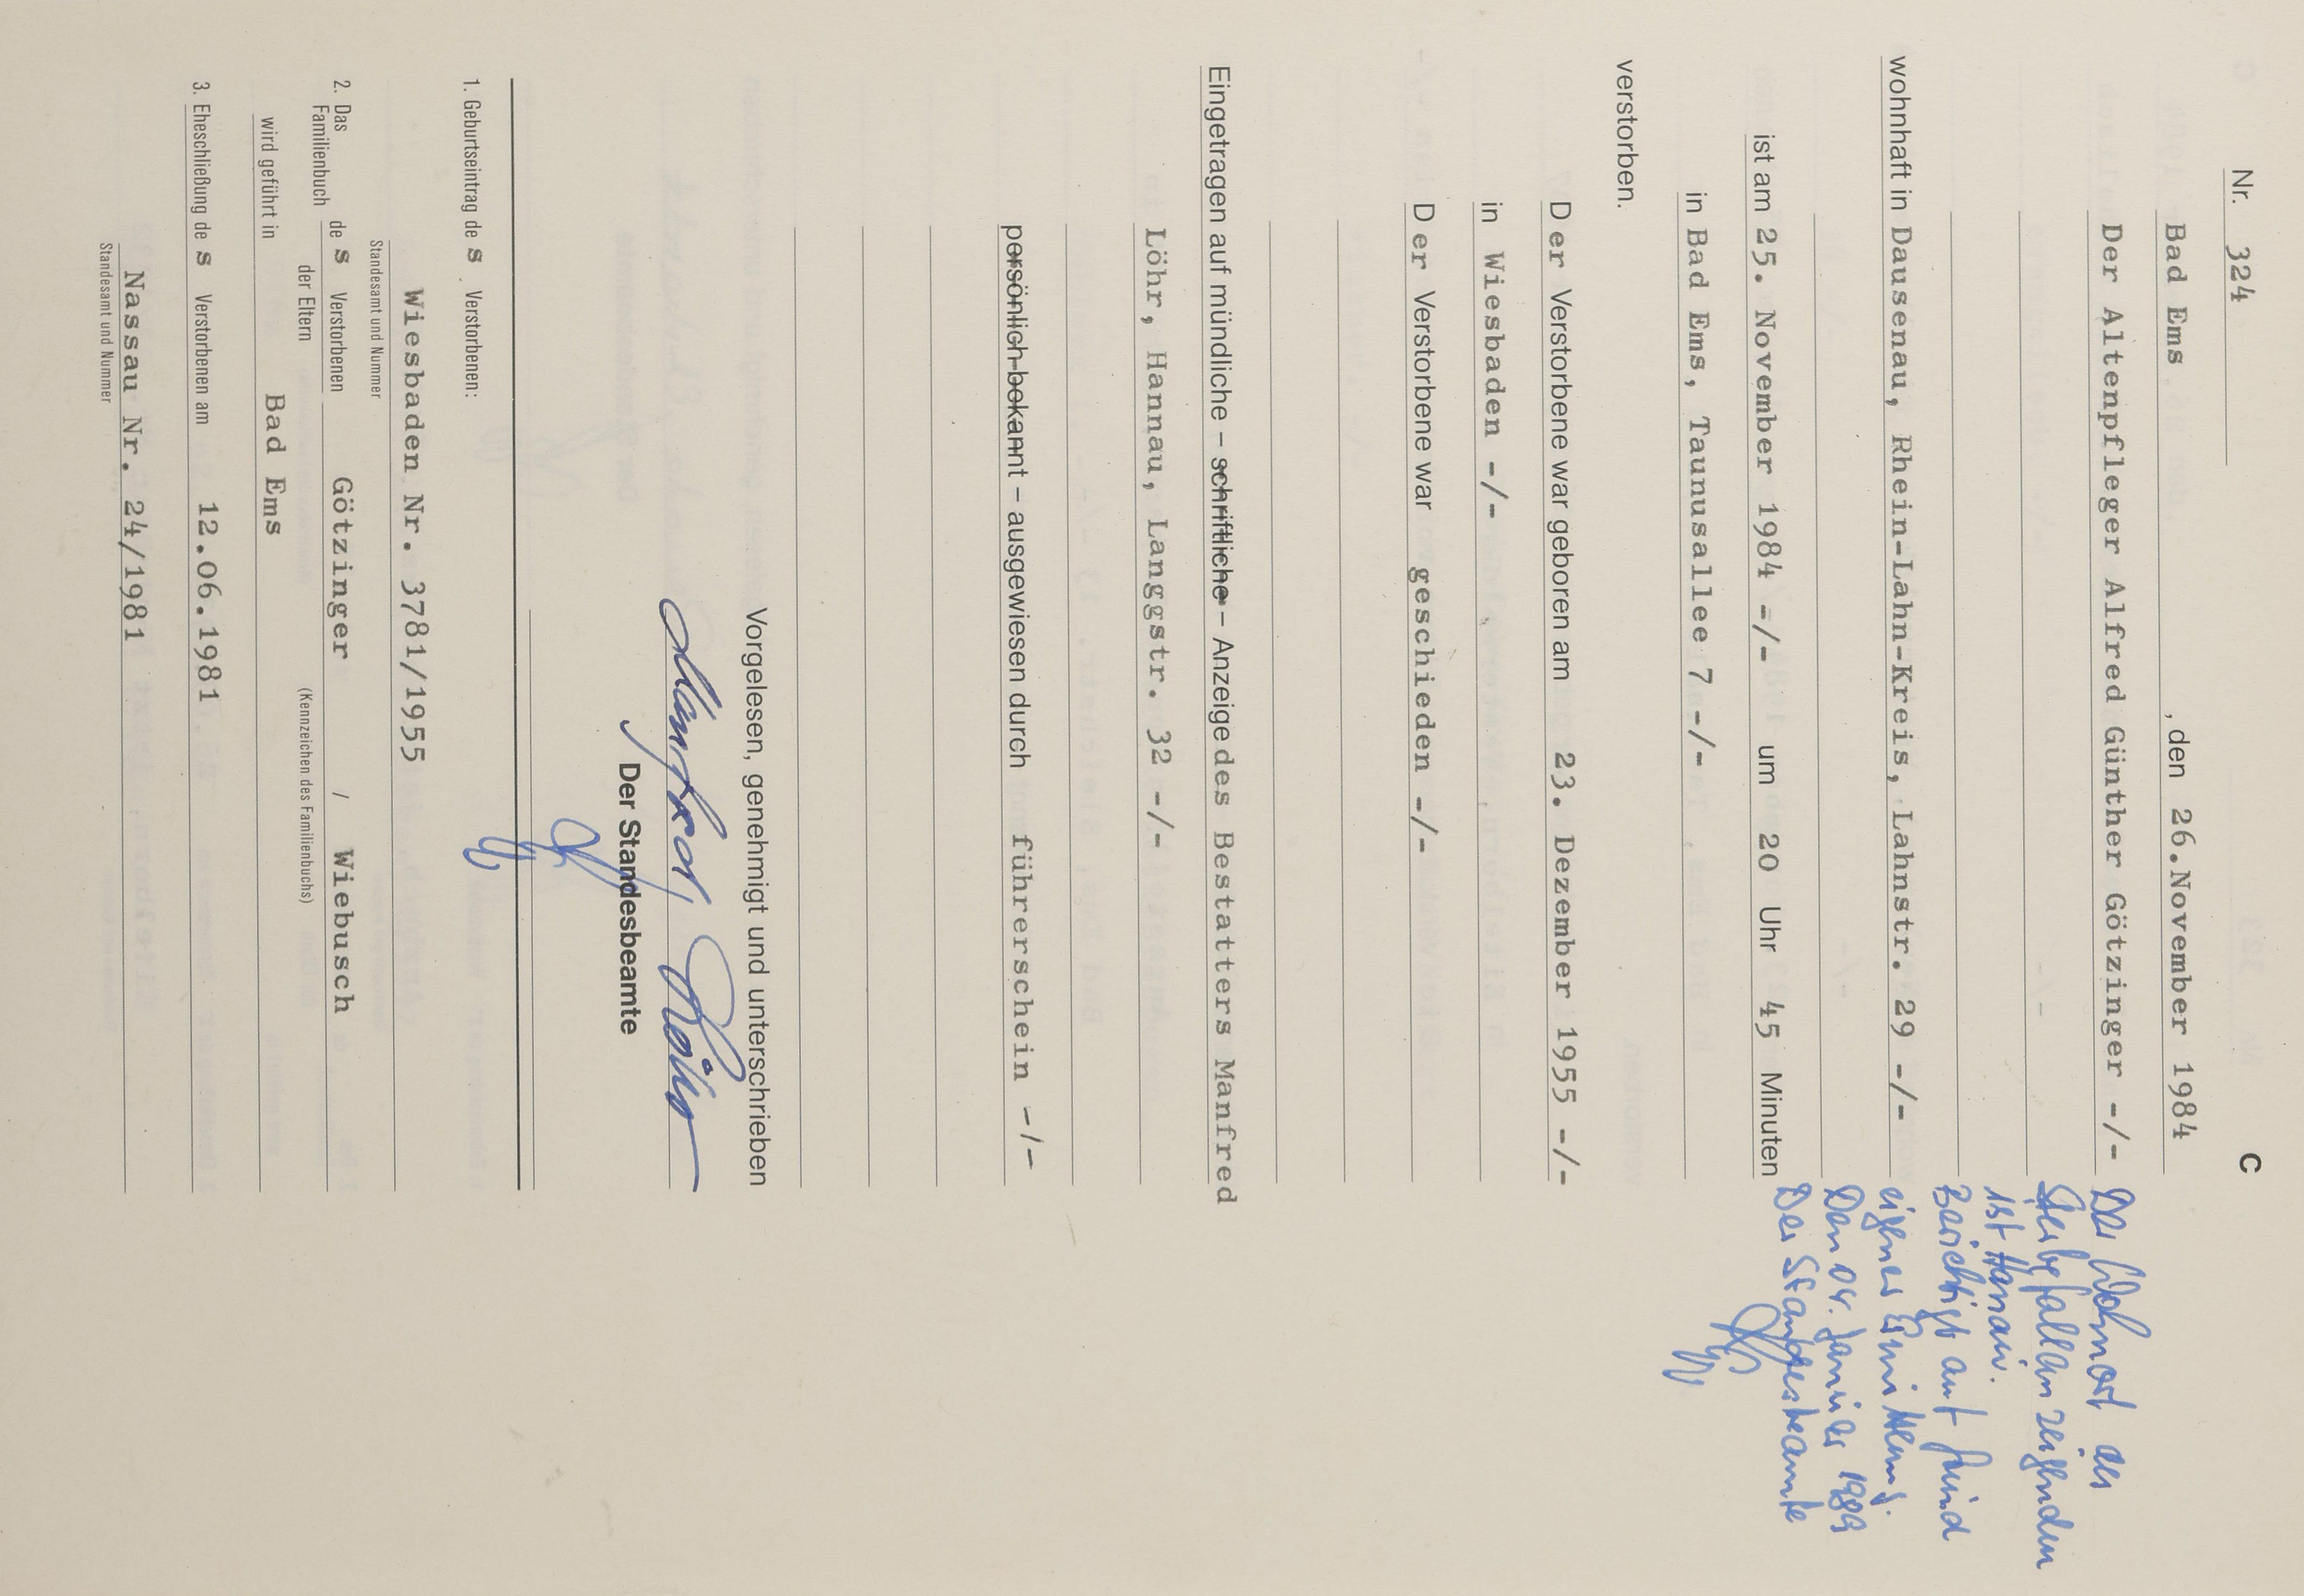 Nr. 324
C
Bad Ems, den 26.November 1984
Der Altenpfleger Alfred Günther Götzinger -/-
wohnhaft in Dausenau, Rhein-Lahn-Kreis, Lahnstr. 29 -/-
ist am 25. November 1984 -/- um 20 Uhr 45 Minuten
in Bad Ems, Taunusallee 7 -/-
verstorben.
Der Verstorbene war geboren am 23. Dezember 1955 -/-
in Wiesbaden -/-
Der Verstorbene war geschieden -/-
Eingetragen auf mündliche – schriftliche – Anzeige des Bestatters Manfred
Löhr, Hannau, Langgstr. 32 -/-
persönlich bekannt – ausgewiesen durch führerschein -/-
Vorgelesen, genehmigt und unterschrieben
Manfred Löhr
Der Standesbeamte
1. Geburtseintrag des Verstorbenen:
Wiesbaden Nr. 3781/1955
Standesamt und Nummer
2. Das Familienbuch des Verstorbenen der Eltern Götzinger / Wiebusch
(Kennzeichen des Familienbuchs)
wird geführt in Bad Ems
3. Eheschließung des Verstorbenen am 12.06.1981
Nassau Nr. 24/1981
Standesamt und Nummer
Der Wohnort des
Sterbefallanzeigenden
ist Hanau.
Berichtigt auf Grund
eigener Ermittlung.
Den 04. Januar 1989
Der Standesbeamte